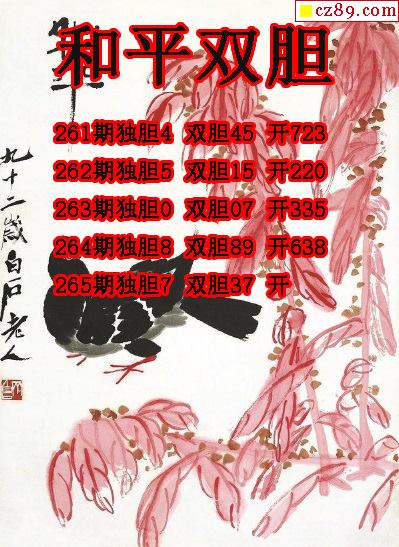 cz89.com
和平双胆
261期独胆4 双胆45 开723
262期独胆5 双胆15 开220
263期独胆0 双胆07 开335
264期独胆8 双胆89 开638
265期独胆7 双胆37 开
九十二岁白石老人